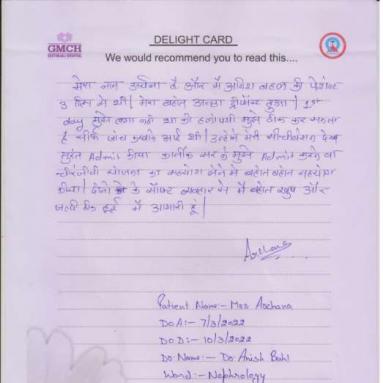 GMCH
DELIGHT CARD
We would recommend you to read this....
मेरा नाम अर्चना है और मैं अनिश बहल की पेशेन्ट
3 दिन से थी। मेरा बहोत अच्छा ट्रीटमेंट हुआ। 1st
मुझे लगा नही था की मुझे ठीक कर सकता
है सीर्फ जांच करवाने आई थी। उन्होने मेरी सीचीवेशन देख
तुरंत Admit कीया कार्तीक सर ने मुझे Admit करने वा
चीरंजीवी योजना का सहयोग लेने में बहोत बहोत सहयोग
कीया। दोनो के सॉफ्ट व्यवहार से मैं बहोत खुष और
जल्दी ठीक हुई मैं आभारी हूं।
Archana
Patient Name:- Mrs Archana
DOA:- 7/3/2022
DOD:- 10/3/2022
Dr. Name:- Dr. Anish Bahl
Word:- Nephrology